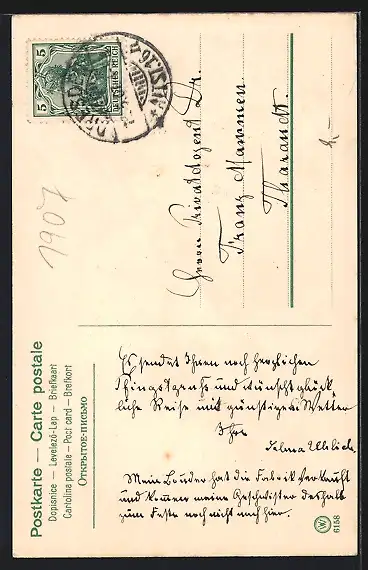 Postkarte — Carte postale
Dopisnice — Levelező-Lap — Briefkaart
Cartolina postale — Post card — Brefkort
Открытое-письмо
5
5
DEUTSCHES REICH
1907
Herrn Privatdozent Dr.
Franz Mammen
Tharandt.
Es sendet Ihnen noch herzlichen
Pfingstgruß und wünscht glück-
liche Reise mit günstigem Wetter
Ihre
Selma Uhlich.
Mein Bruder hat die Fabrik verkauft
und kommen meine Geschwister deshalb
zum Feste noch nicht nach hier.
W
6158